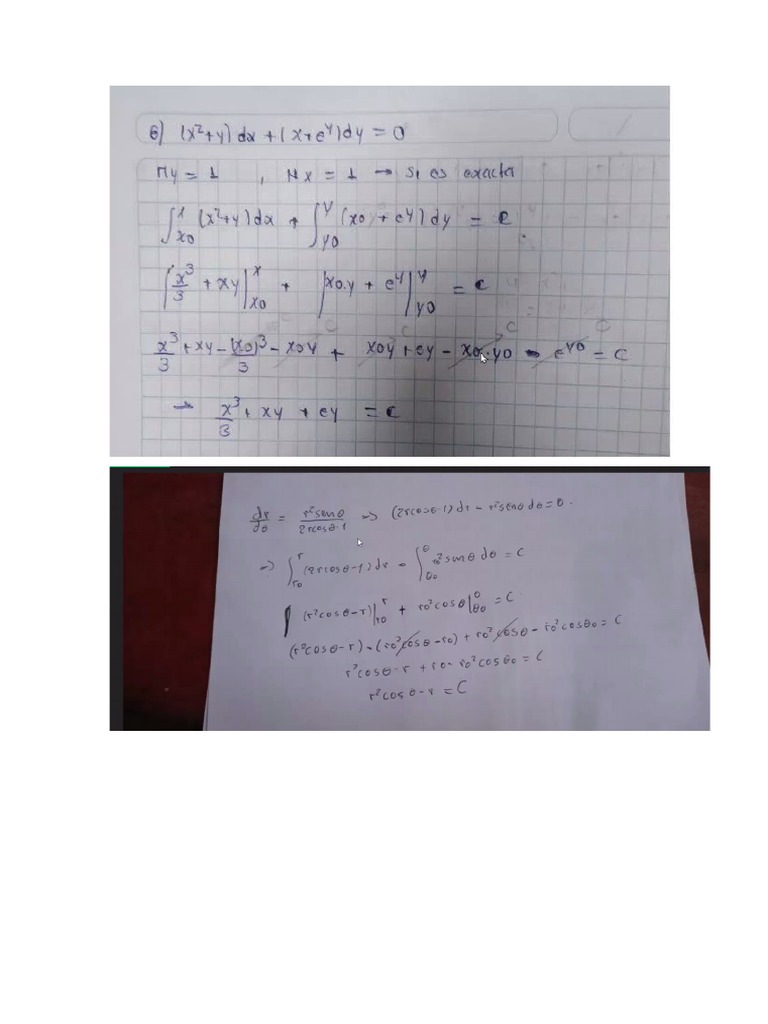 6) (x²+y)dx+(x+e^y)dy=0
My=1 , Nx=1 → Si es exacta
∫_{x0}^{x} (x²+y)dx + ∫_{y0}^{y} (x0+e^y)dy = c
|x³/3 + xy|_{x0}^{x} + |x0.y + e^y|_{y0}^{y} = c
x³/3 + xy - (x0)³/3 - x0y + x0y + ey - x0.y0 - e^{y0} = c
→ x³/3 + xy + ey = c
dr/dθ = r²senθ/2rcosθ-1 => (2rcosθ-1)dr - r²senθdθ=0.
=> ∫_{r0}^{r} (2rcosθ-1)dr - ∫_{θ0}^{θ} r0²senθdθ = C
(r²cosθ-r)|_{r0}^{r} + r0²cosθ|_{θ0}^{θ} = C.
(r²cosθ-r)-(r0²cosθ-r0)+r0²cosθ-r0²cosθ0=C
r²cosθ-r+r0-r0²cosθ0=C
r²cosθ-r=C